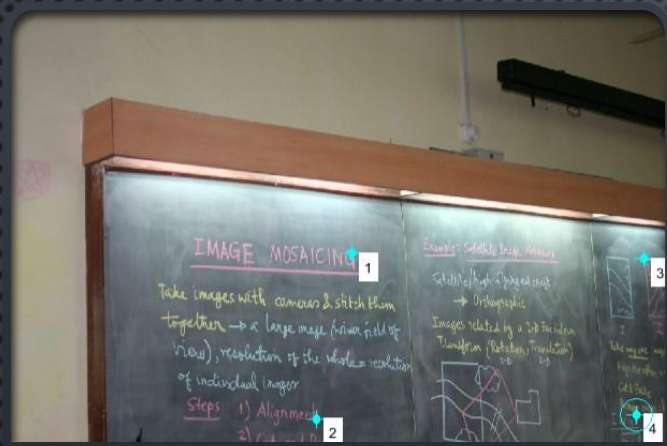 IMAGE MOSAICING
Take images with cameras & stitch them
together → a large image (wider field of
view), resolution of the whole = resolution
of individual images
Steps 1) Alignment
2)
Example: Satellite Image Mosaics
Satellite/high flying
→ Orthographic
Images related by a 2-D Euclidean
Transform (Rotation, Translation)
2-D 2-D
I
Take any one
1
2
3
4